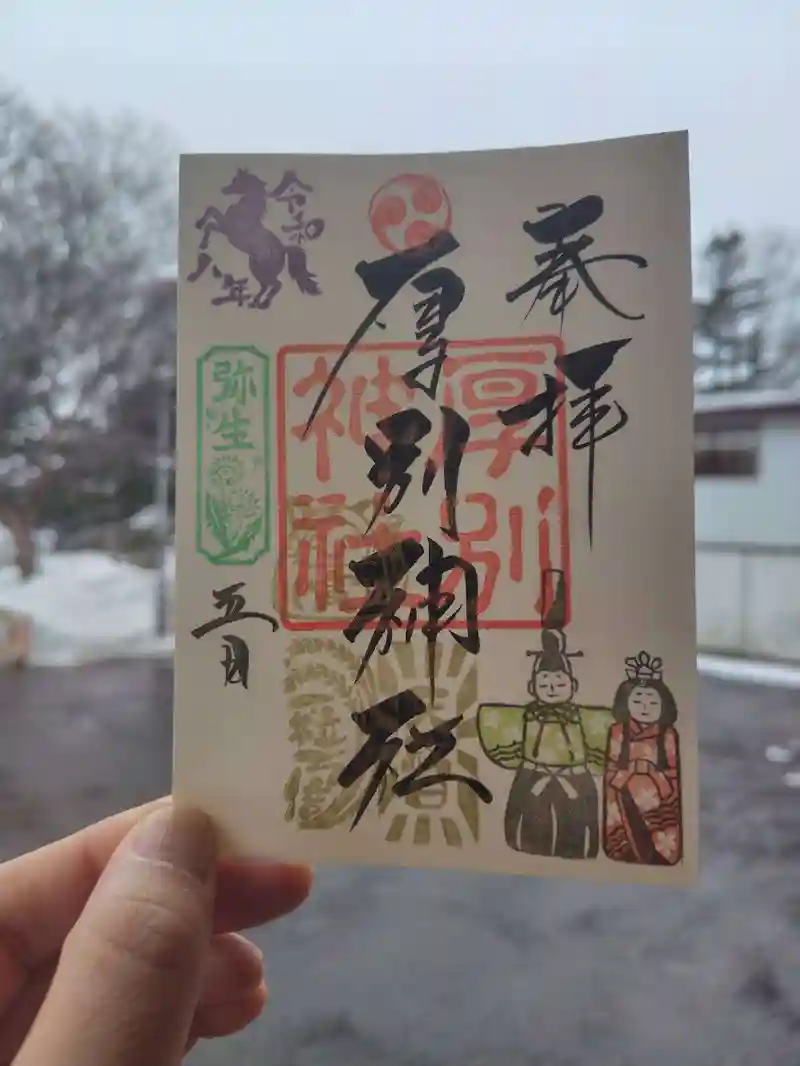 奉拝
厚別神社
厚別神社
令和八年
弥生
五日
一粒万倍